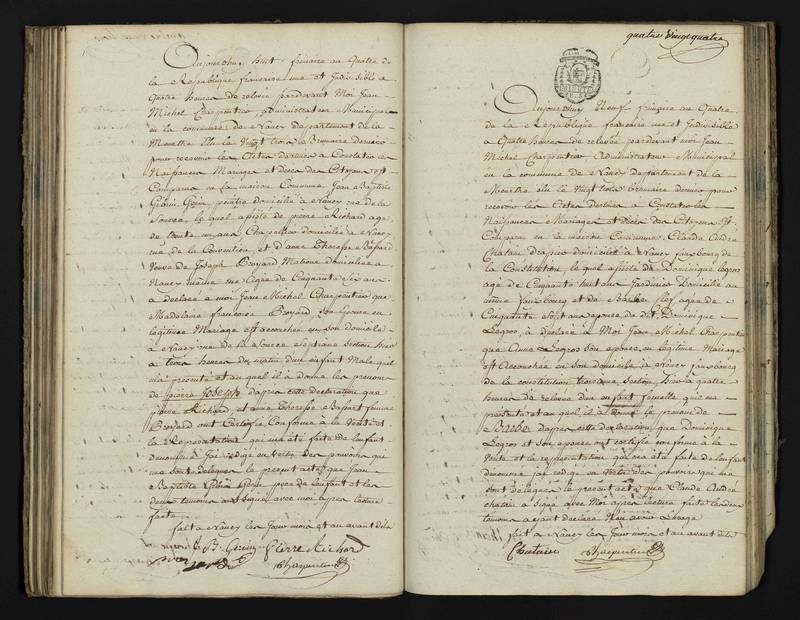 Aujourdhuy huit frimaire an Quatre de
la République françoise une et Indivisible a
Quatre heures de relevée pardevant Moi Jean
Michel Charpentier, administrateur Municipal
en la commune de Nancy departement de la
Meurthe Elu le Vingt trois Brumaire dernier
pour recevoir les Actes destinés a Constater les
Naissances Mariages et Décès des Citoyens est
Comparu en la maison Commune Jean Baptiste
peintre domicilié a Nancy rue de la
Source, lequel assisté de pierre Richard agé
de trente un ans Chapellier domicilié a Nancy
rue de la Convention et d'anne Therese
Veuve de Joseph Broyard Matrone domiciliée a
Nancy meme rue agée de Cinquante Six ans
a déclaré a moi Jean Michel Charpentier que
Madelaine françoise Broyard, Son Epouse en
légitime Mariage est accouchée en Son domicile
a Nancy rue de la Source Section hier
a trois heures du matin d'un enfant Male qu'il
m'a présenté et auquel il a donné les prenoms
de pierre Joseph d'après cette déclaration que
pierre Richard, et anne Therese femme
Broyard ont Certifié Conforme à la Vérité et
la Représentation qui m'a été faite de l'enfant
denommé J'ai rédigé en vertu des pouvoirs qui
me sont délégués le présent acte que Jean
Baptiste père de l'enfant et les
deux temoins ont Signé avec moi après lecture
faite
fait a Nancy les Jour mois et an avant dits
Pierre Richard
Charpentier
quatre Vingt quatre
Aujourdhuy Neuf frimaire an Quatre
de la République françoise une et indivisible
a Quatre heures de relevée pardevant moi Jean
Michel Charpentier Administrateur Municipal
en la commune de Nancy departement de la
Meurthe élu le Vingt trois brumaire dernier pour
recevoir les Actes destinés a Constater les
Naissances Mariages et Décès des Citoyens Est
Comparu en la maison Commune Claude André
Chatrian domicilié a Nancy fauxbourg de
la Constitution lequel assisté de Dominique Legros
agé de Cinquante huit ans Jardinier Domicilié au
même fauxbourg et de Barbe agée de
Cinquante ans epouse du dit Dominique
Legros, a déclaré a Moi Jean Michel Charpentier
que Anne Legros Son epouse en légitime Mariage
est Accouchée en Son domicile a Nancy fauxbourg
de la constitution troisieme Section hier a quatre
heures de relevée d'un enfant femelle qu'il m'a
présenté et auquel il a donné le prenom de
Barbe d'après cette déclaration que Dominique
Legros et Son epouse ont certifié conforme a la
Vérité et la représentation qui m'a été faite de l'enfant
denommé j'ai redigé en Vertu des pouvoirs qui me
sont délégués le présent acte que Claude André
Chatrian a Signé avec Moi après lecture faite les deux
temoins ayant declaré Neu avoir L'usage
fait a Nancy les Jour mois et an avant dits
Charpentier